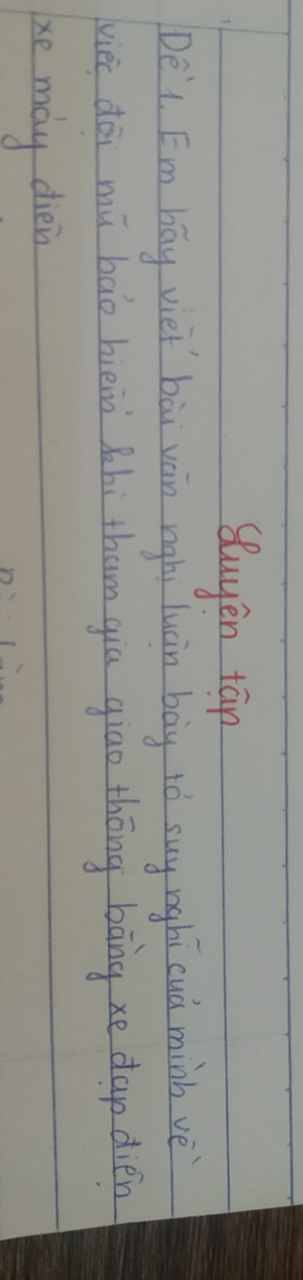 Luyện tập
Đề 1. Em hãy viết bài văn nghị luận bày tỏ suy nghĩ của mình về
việc đội mũ bảo hiểm khi tham gia giao thông bằng xe đạp điện
xe máy điện